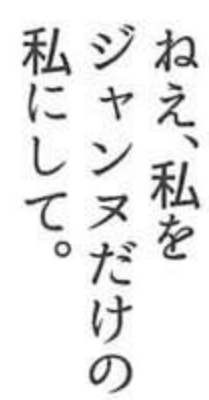 ねえ、私を
ジャンヌだけの
私にして。